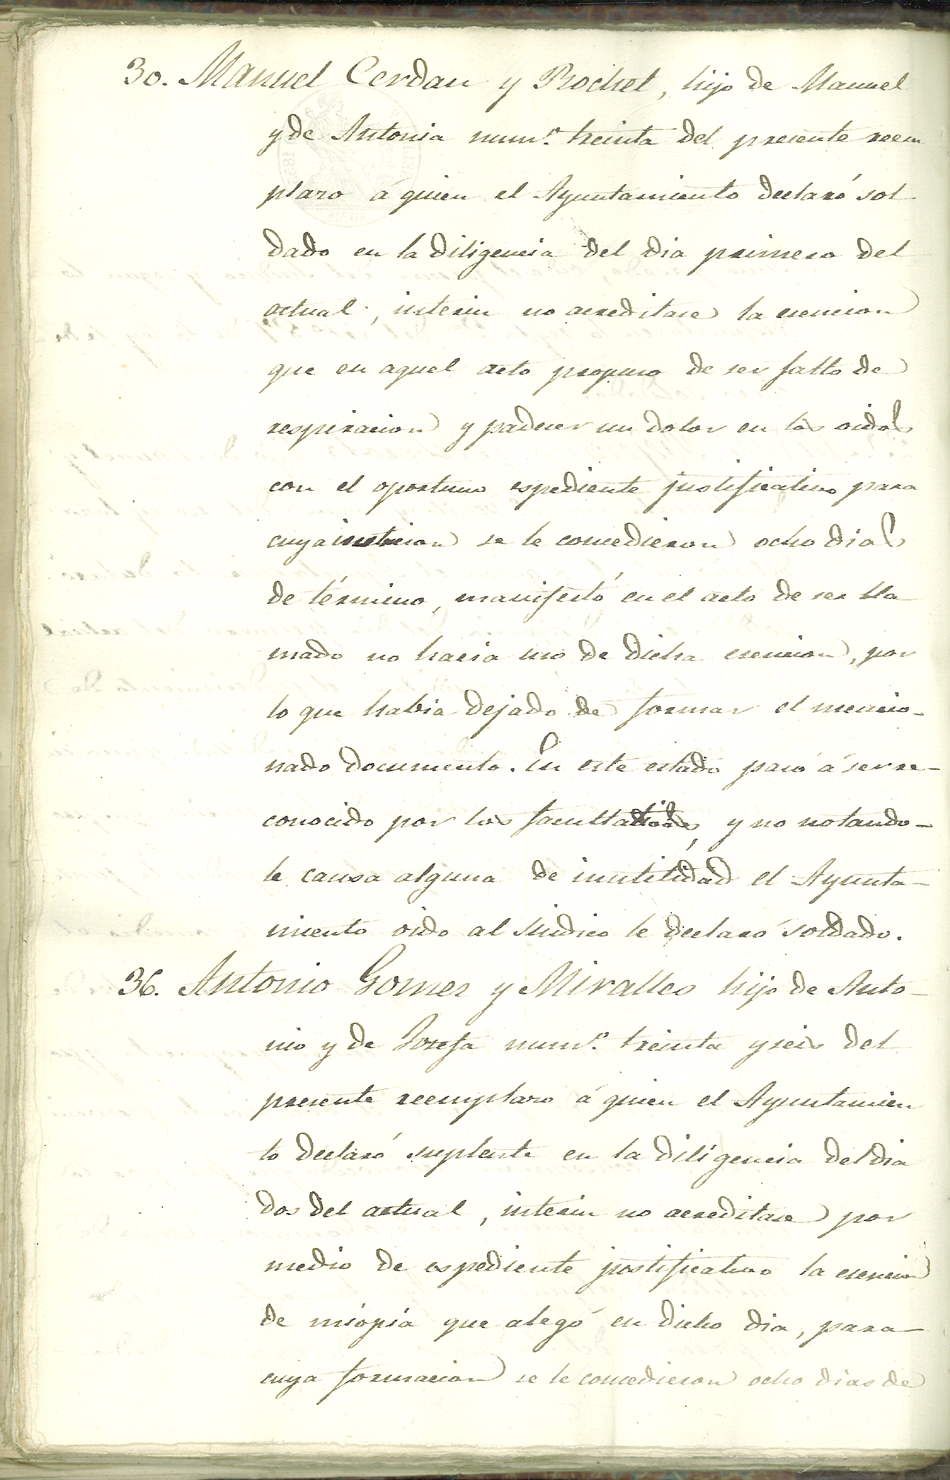 30. Manuel Cerdan y Rochet, hijo de Manuel
y de Antonia num.º treinta del presente reem
plazo á quien el Ayuntamiento declaró sol
dado en la diligencia del dia primero del
actual, interin no acreditase la esencion
que en aquel acto propuso de ser falto de
respiracion y padecer un dolor en los oidos
con el oportuno espediente justificativo para
cuya se le concedieron ocho dias
de término, manifestó en el acto de ser lla
mado no hacia uso de dicha esencion, por
lo que habia dejado de formar el mencio-
nado documento. En este estado pasó á ser re-
conocido por los facultativos, y no notando-
le causa alguna de inutilidad el Ayunta-
miento oido al Sindico le declaró soldado.
36. Antonio Gomez y Miralles hijo de Anto-
nio y de Josefa num.º treinta y seis del
presente reemplazo á quien el Ayuntamien
to declaró suplente en la diligencia del dia
dos del actual, interin no acreditase por
medio de espediente justificativo la esencion
de miopia que alegó en dicho dia, para
cuya formacion se le concedieron ocho dias de